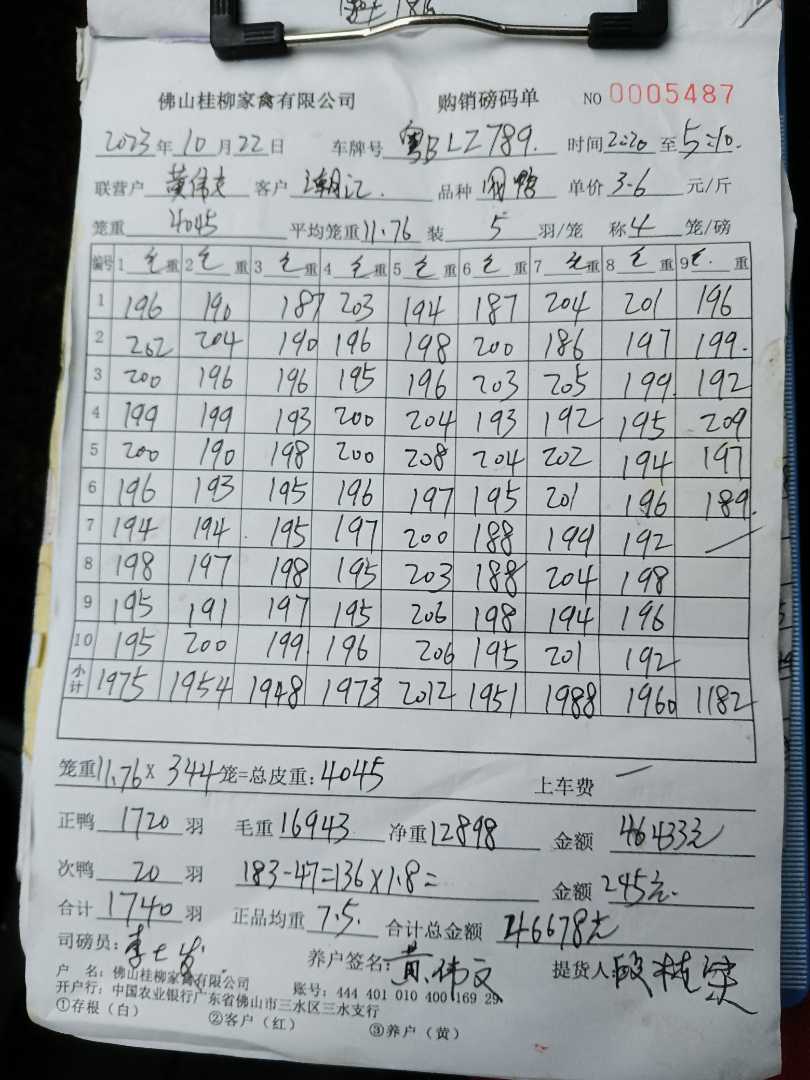 佛山桂柳家禽有限公司 购销磅码单 NO 0005487
2023年10月22日 车牌号 粤BLZ789. 时间2:20至5:10.
联营户 黄伟文 客户 潮记. 品种 单价3.6元/斤
笼重 4045 平均笼重11.76 装 5 羽/笼 称4 笼/磅
编号 1 毛重 2 毛重 3 毛重 4 毛重 5 毛重 6 毛重 7 毛重 8 毛重 9 毛重
1 196 190 187 203 194 187 204 201 196
2 202 204 190 196 198 200 186 197 199.
3 200 196 196 195 196 203 205 199 192
4 199 199 193 200 204 193 192 195 209
5 200 190 198 200 208 204 202 194 197
6 196 193 195 196 197 195 201 196 189.
7 194 194 195 197 200 188 199 192
8 198 197 198 195 203 188 204 198
9 195 191 197 195 206 198 194 196
10 195 200 199 196 206 195 201 192
小计 1975 1954 1948 1973 2012 1951 1988 1960 1182
笼重11.76×344笼=总皮重:4045 上车费 一
正鸭 1720 羽 毛重16943 净重12898 金额 46433元
次鸭 20 羽 183-47=136×1.8= 金额 245元.
合计1740羽 正品均重 7.5. 合计总金额 46678元
司磅员: 养户签名:黄伟文 提货人:
户 名:佛山桂柳家禽有限公司 账号:444 401 010 400 169 29
开户行:中国农业银行广东省佛山市三水区三水支行
①存根(白) ②客户(红) ③养户(黄)